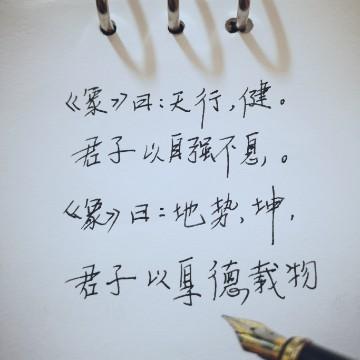 《象》曰：天行，健。
君子以自强不息，。
《象》曰：地势，坤，
君子以厚德载物